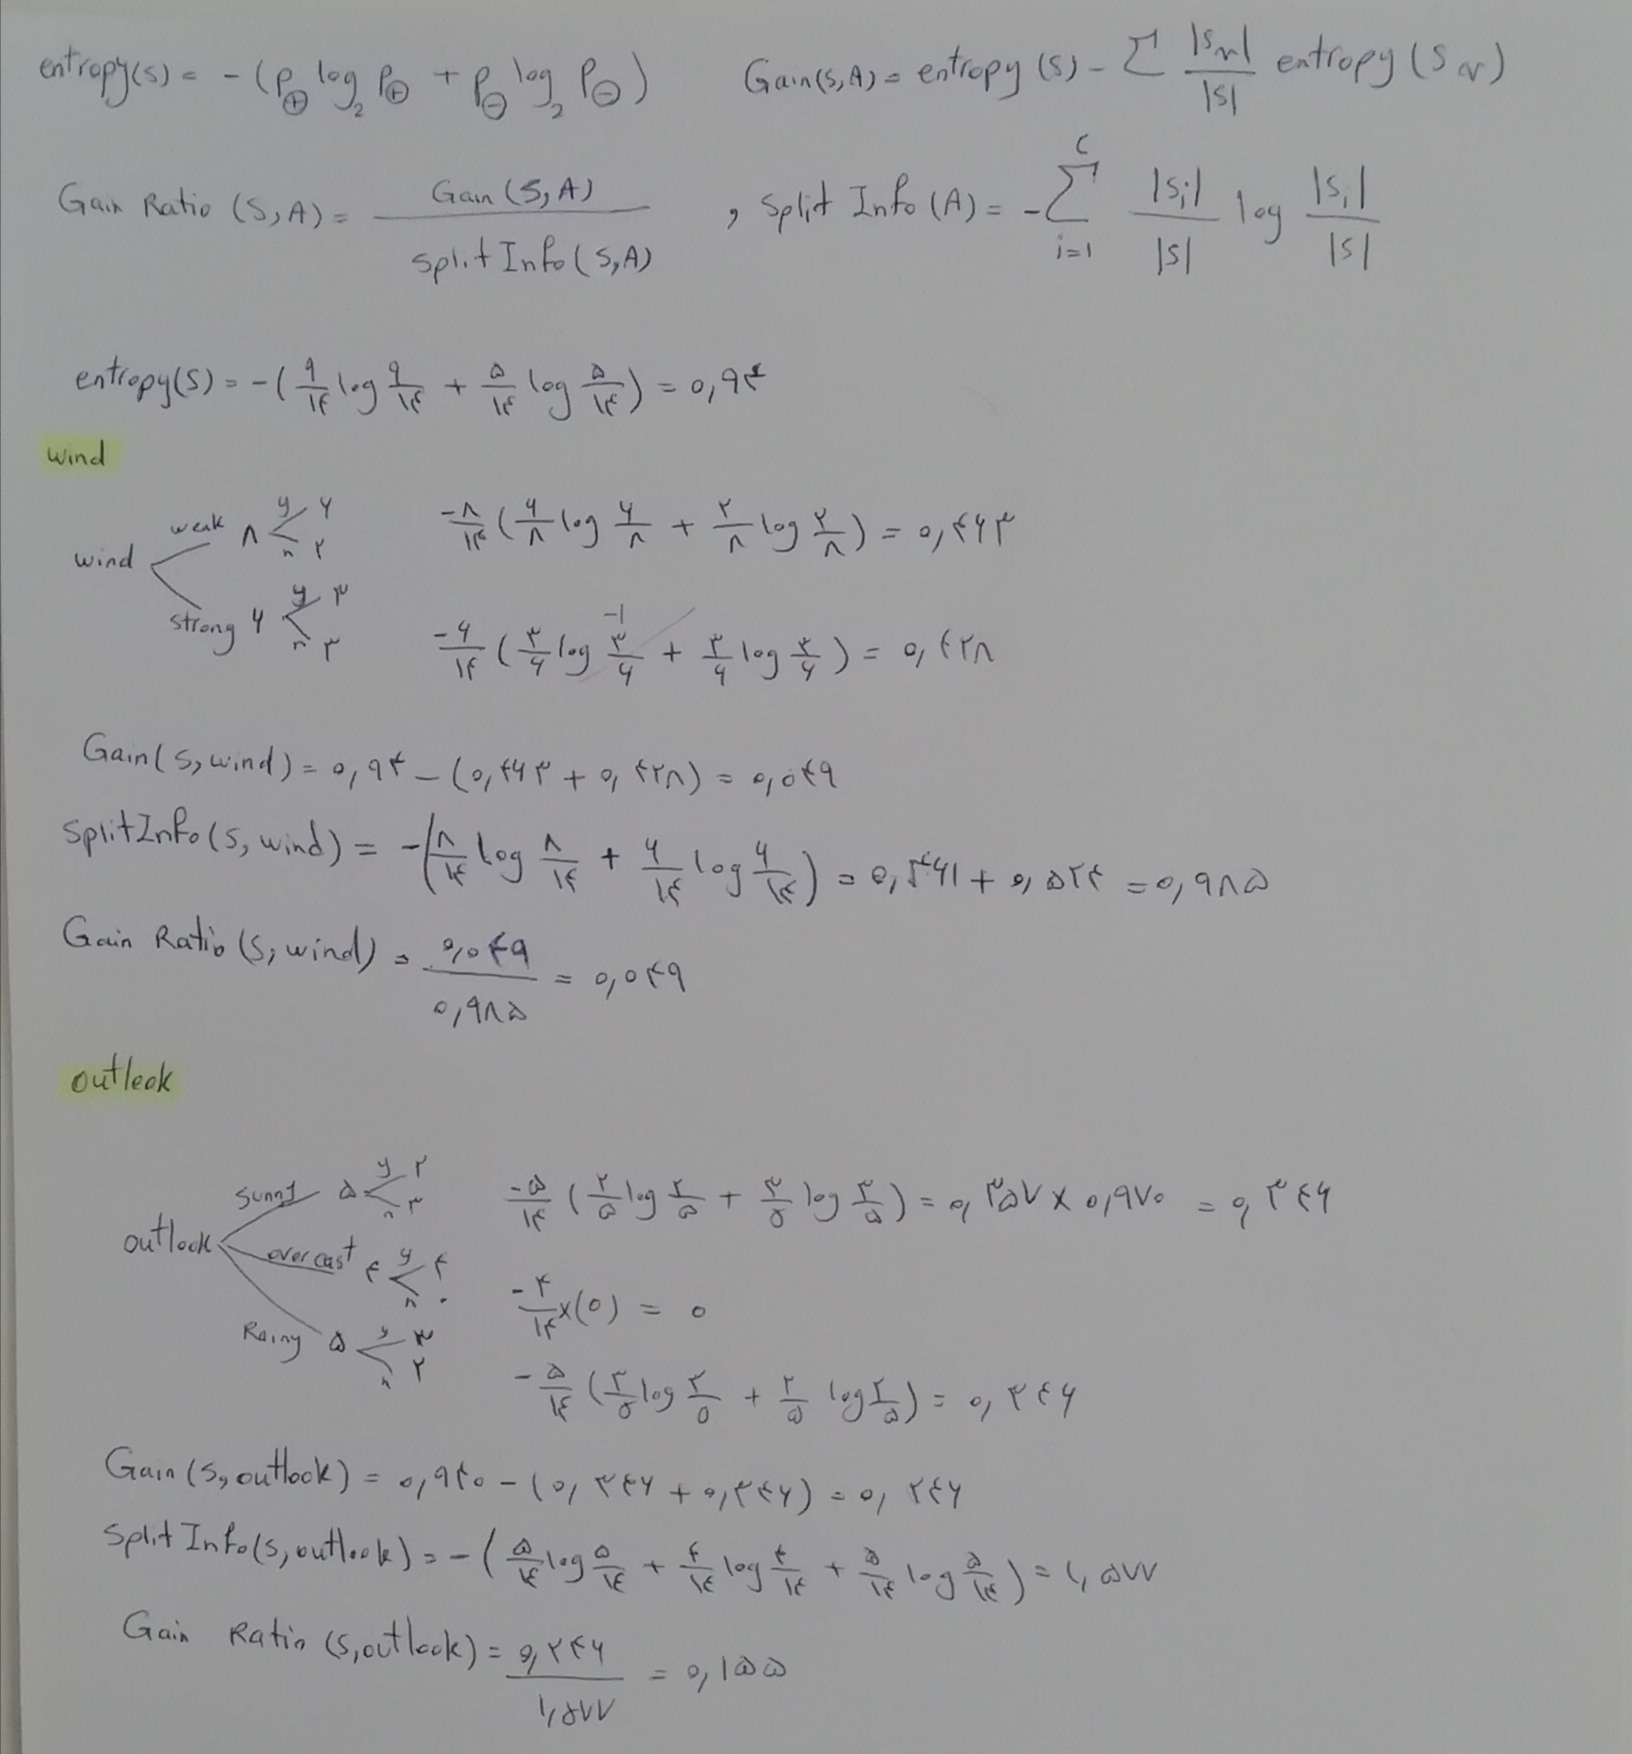 entropy(S) = -(P⊕ log₂ P⊕ + P⊖ log₂ P⊖)    Gain(S,A) = entropy(S) - Σ |Sv|/|S| entropy(Sv)
Gain Ratio (S,A) = Gain(S,A) / split Info(S,A) , split Info(A) = - Σ_{i=1}^{c} |Si|/|S| log |Si|/|S|
entropy(S) = -(۹/۱۴ log ۹/۱۴ + ۵/۱۴ log ۵/۱۴) = ۰,۹۴
wind
weak ۸ y ۶ n ۲    -۸/۱۴ (۶/۸ log ۶/۸ + ۲/۸ log ۲/۸) = ۰,۴۶۳
wind
strong ۶ y ۳ n ۳    -۶/۱۴ (۳/۶ log ۳/۶ -1 + ۳/۶ log ۳/۶) = ۰,۴۲۸
Gain(S,wind) = ۰,۹۴ - (۰,۴۶۳ + ۰,۴۲۸) = ۰,۰۴۹
SplitInfo(S,wind) = -(۸/۱۴ log ۸/۱۴ + ۶/۱۴ log ۶/۱۴) = ۰,۴۶۱ + ۰,۵۲۴ = ۰,۹۸۵
Gain Ratio (S,wind) = ۰,۰۴۹ / ۰,۹۸۵ = ۰,۰۴۹
outlook
sunny ۵ y ۲ n ۳    -۵/۱۴ (۲/۵ log ۲/۵ + ۳/۵ log ۳/۵) = ۰,۳۵۷ × ۰,۹۷۰ = ۰,۳۴۶
outlook overcast ۴ y ۴ n ۰    -۴/۱۴ ×(۰) = ۰
Rainy ۵ y ۳ n ۲    -۵/۱۴ (۳/۵ log ۳/۵ + ۲/۵ log ۲/۵) = ۰,۳۴۶
Gain(S,outlook) = ۰,۹۴۰ - (۰,۳۴۶ + ۰,۳۴۶) = ۰,۲۴۶
Split Info(S,outlook) = -(۵/۱۴ log ۵/۱۴ + ۴/۱۴ log ۴/۱۴ + ۵/۱۴ log ۵/۱۴) = ۱,۵۷۷
Gain Ratio (S,outlook) = ۰,۲۴۶ / ۱,۵۷۷ = ۰,۱۵۵